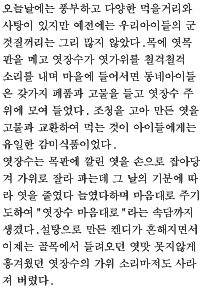 오늘날에는 풍부하고 다양한 먹을거리와
사탕이 있지만 예전에는 우리아이들의 군
것질꺼리는 그리 많지 않았다.목에 엿목
판을 메고 엿장수가 엿가위를 철걱철걱
소리를 내며 마을에 들어서면 동네아이들
은 갖가지 폐품과 고물을 들고 엿장수 주
위에 모여 들었다. 조청을 고아 만든 엿을
고물과 교환하여 먹는 것이 아이들에게는
유일한 감미식품이었다.
엿장수는 목판에 깔린 엿을 손으로 잡아당
겨 가위로 잘라 파는데 그 날의 기분에 따
라 엿을 줄였다 늘였다하며 마음대로 주기
도하여 "엿장수 마음대로"라는 속담까지
생겼다.설탕으로 만든 캔디가 흔해지면서
이제는 골목에서 들려오던 엿맛 못지않게
흥겨웠던 엿장수의 가위 소리마저도 사라
져 버렸다.